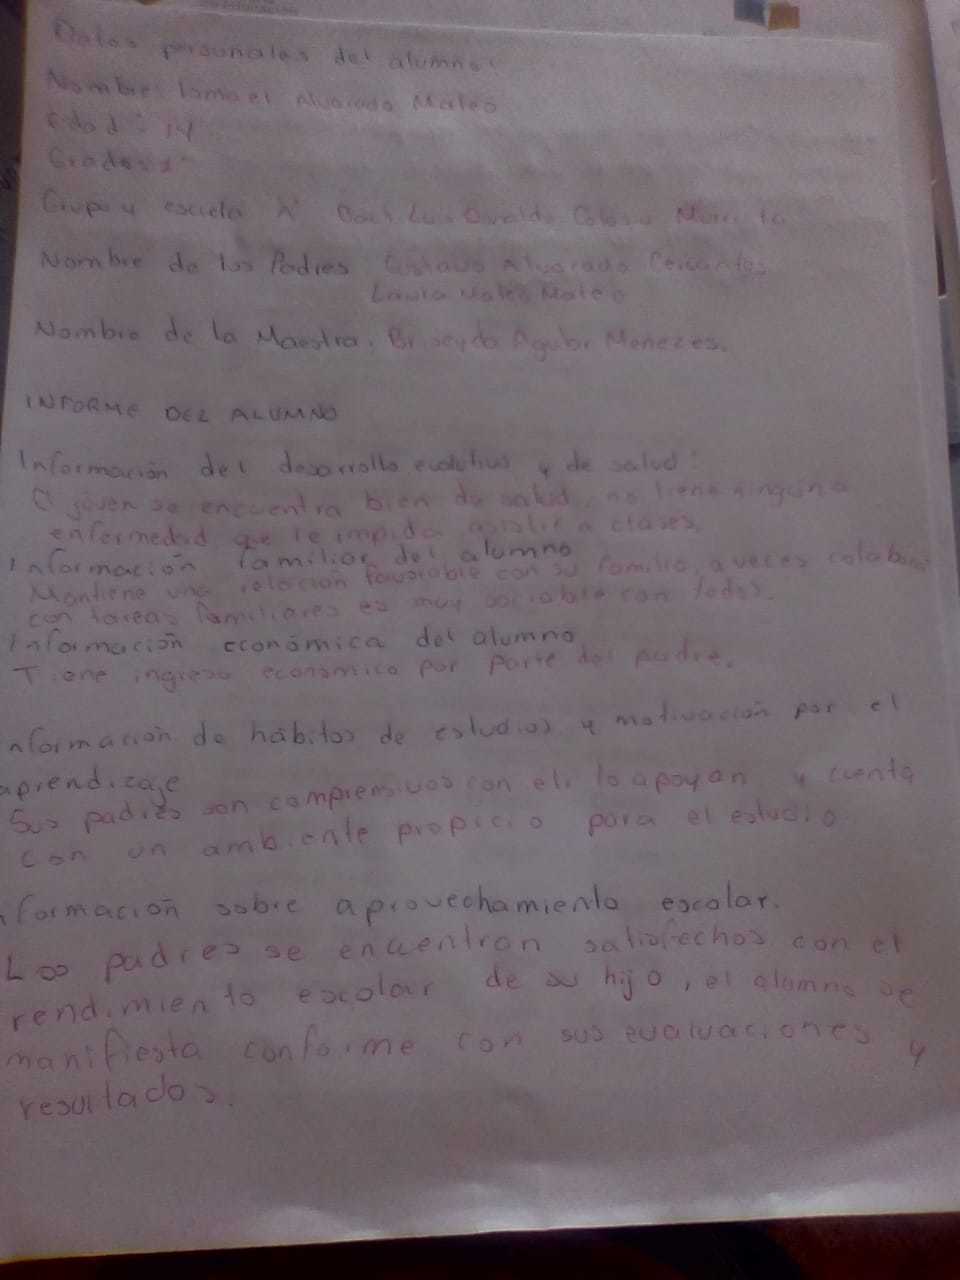 Datos personales del alumno:
Nombre: Ismael Alvarado Mateo
Edad: 14
Grado: 1°
Grupo y escuela "A" Luis Donaldo Colosio Murrieta
Nombre de los Padres Gustavo Alvarado Cervantes
Laura Mateo Mateo
Nombre de la Maestra. Briseyda Aguilar Meneces.
INFORME DEL ALUMNO
Información del desarrollo evolutivo y de salud:
El joven se encuentra bien de salud, no tiene ninguna
enfermedad que le impida asistir a clases.
Información familiar del alumno
Mantiene una relación favorable con su familia, a veces colabora
con tareas familiares es muy sociable con todos.
Información económica del alumno
Tiene ingreso económico por parte del padre.
nformación de hábitos de estudios y motivación por el
aprendizaje
Sus padres son comprensivos con el, lo apoyan y cuenta
con un ambiente propicio para el estudio
nformación sobre aprovechamiento escolar.
Los padres se encuentran satisfechos con el
rendimiento escolar de su hijo, el alumno se
manifiesta conforme con sus evaluaciones y
resultados.